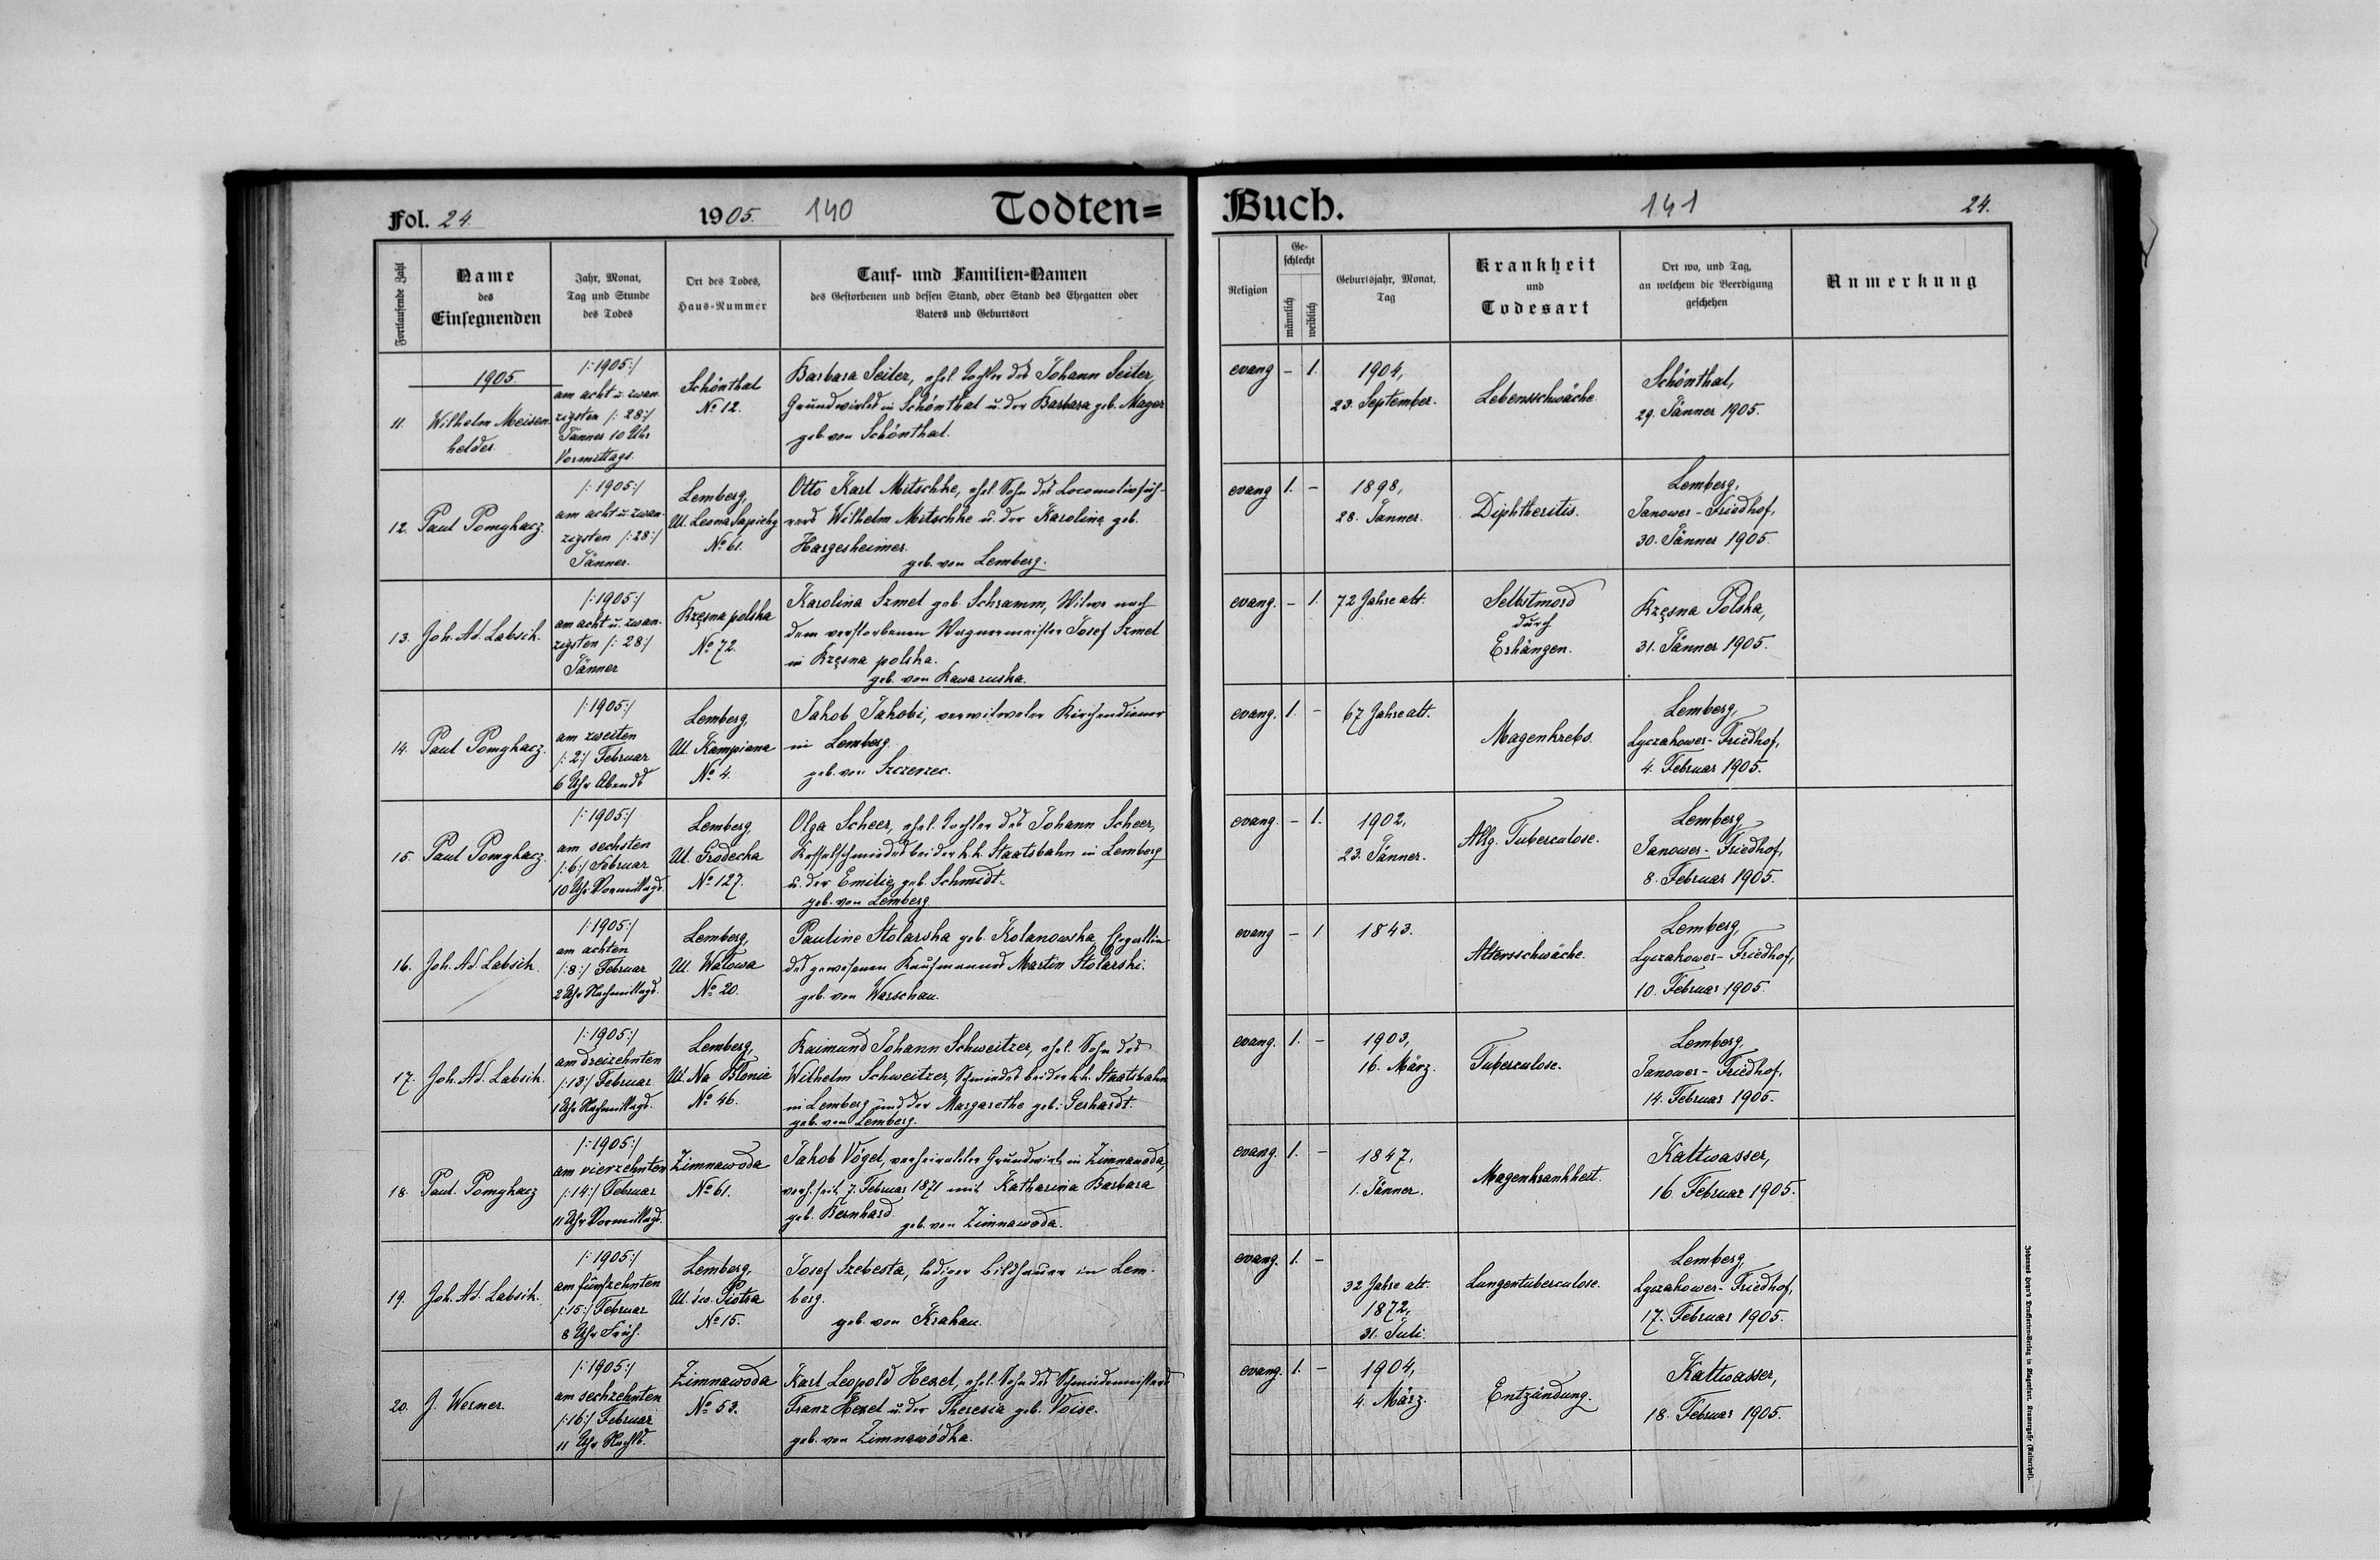 Fol. 24. 1905. 140 Todten=
Fortlaufende Zahl
Name
des
Einsegnenden
Jahr, Monat,
Tag und Stunde
des Todes
Ort des Todes,
Haus-Nummer
Tauf- und Familien-Namen
des Gestorbenen und dessen Stand, oder Stand des Ehegatten oder
Vaters und Geburtsort
1905.
11.
Wilhelm Meisen-
helder.
/:1905:/
am acht u. zwan-
zigsten /:28:/
Jänner 10 Uhr
Vormittags.
Schönthal
No 12.
Barbara Seiler, ehel. Tochter des Johann Seiler,
Grundwirtes in Schönthal u. der Barbara geb. Mager
geb. von Schönthal.
12.
Paul Pomykacz.
/:1905:/
am acht u. zwan-
zigsten /:28:/
Jänner.
Lemberg,
Ul. Leona Sapiehy
No 61.
Otto Karl Mitschke, ehel. Sohn des Locomotivfüh-
rers Wilhelm Mitschke u. der Karoline geb.
Hargesheimer.
geb. von Lemberg.
13.
Joh. Ad. Labsik.
/:1905:/
am acht u. zwan-
zigsten /:28:/
Jänner
Krzęsna polska
No 72.
Karolina Szmel geb. Schramm, Witwe nach
dem verstorbenen Wagnermeister Josef Szmel
in Krzęsna polska.
geb. von Rawaruska.
14.
Paul Pomykacz.
/:1905:/
am zweiten
/:2:/ Februar
6 Uhr Abends
Lemberg,
Ul. Kampiana
No 4.
Jakob Jakobi, verwitweter Kirchendiener
in Lemberg.
geb. von Szczerzec.
15.
Paul Pomykacz.
/:1905:/
am sechsten
/:6:/ Februar
10 Uhr Vormittags.
Lemberg,
Ul. Grodecka
No 127.
Olga Scheer, ehel. Tochter des Johann Scheer,
Kesselschmiedes bei der k.k. Staatsbahn in Lemberg
u. der Emilie geb. Schmidt.
geb. von Lemberg.
16.
Joh. Ad. Labsik.
/:1905:/
am achten
/:8:/ Februar
2 Uhr Nachmittags.
Lemberg,
Ul. Wałowa
No 20.
Pauline Stolarska geb. Kolanowska, Ehegattin
des gewesenen Kaufmannes Martin Stolarski.
geb. von Warschau.
17.
Joh. Ad. Labsik.
/:1905:/
am dreizehnten
/:13:/ Februar
1 Uhr Nachmittags.
Lemberg,
Ul. Na Błonie
No 46.
Raimund Johann Schweitzer, ehel. Sohn des
Wilhelm Schweitzer, Schmiedes bei der k.k. Staatsbahn
in Lemberg und der Margarethe geb. Gerhardt.
geb. von Lemberg.
18.
Paul Pomykacz
/:1905:/
am vierzehnten
/:14:/ Februar
11 Uhr Vormittags.
Zimnawoda
No 61.
Jakob Vögel, verheirateter Grundwirt in Zimnawoda,
verh. seit 7. Februar 1871 mit Katharina Barbara
geb. Bernhard.
geb. von Zimnawoda.
19.
Joh. Ad. Labsik.
/:1905:/
am fünfzehnten
/:15:/ Februar
8 Uhr Früh.
Lemberg,
Ul. św. Piotra
No 15.
Josef Szebesta, lediger Bildhauer in Lem-
berg.
geb. von Krakau.
20.
J. Werner.
/:1905:/
am sechzehnten
/:16:/ Februar
11 Uhr Nachts.
Zimnawoda
No 53.
Karl Leopold Hexel, ehel. Sohn des Schmiedemeisters
Franz Hexel u. der Theresia geb. Voise.
geb. von Zimnawódka.
Buch. 141 24.
Religion
Ge-
schlecht
männlich
weiblich
Geburtsjahr, Monat,
Tag
Krankheit
und
Todesart
Ort wo, und Tag,
an welchem die Beerdigung
geschehen
Anmerkung
evang – 1.
1904,
23. September.
Lebensschwäche
Schönthal,
29. Jänner 1905.
evang 1. –
1898,
28. Jänner.
Diphtheritis.
Lemberg,
Janower-Friedhof,
30. Jänner 1905.
evang. – 1.
72 Jahre alt.
Selbstmord
durch
Erhängen.
Krzęsna Polska,
31. Jänner 1905.
evang. 1. –
67 Jahre alt.
Magenkrebs.
Lemberg,
Lyczakower-Friedhof,
4. Februar 1905.
evang. – 1.
1902,
23. Jänner.
Allg. Tuberculose.
Lemberg,
Janower-Friedhof,
8. Februar 1905.
evang – 1
1843.
Altersschwäche.
Lemberg,
Lyczakower-Friedhof,
10. Februar 1905.
evang. 1. –
1903,
16. März.
Tuberculose.
Lemberg,
Janower-Friedhof,
14. Februar 1905.
evang. 1. –
1847,
1. Jänner.
Magenkrankheit.
Kaltwasser,
16. Februar 1905.
evang. 1. –
32 Jahre alt.
1872,
31. Juli.
Lungentuberculose.
Lemberg,
Lyczakower-Friedhof,
17. Februar 1905.
evang. 1. –
1904,
4. März.
Entzündung.
Kaltwasser,
18. Februar 1905.